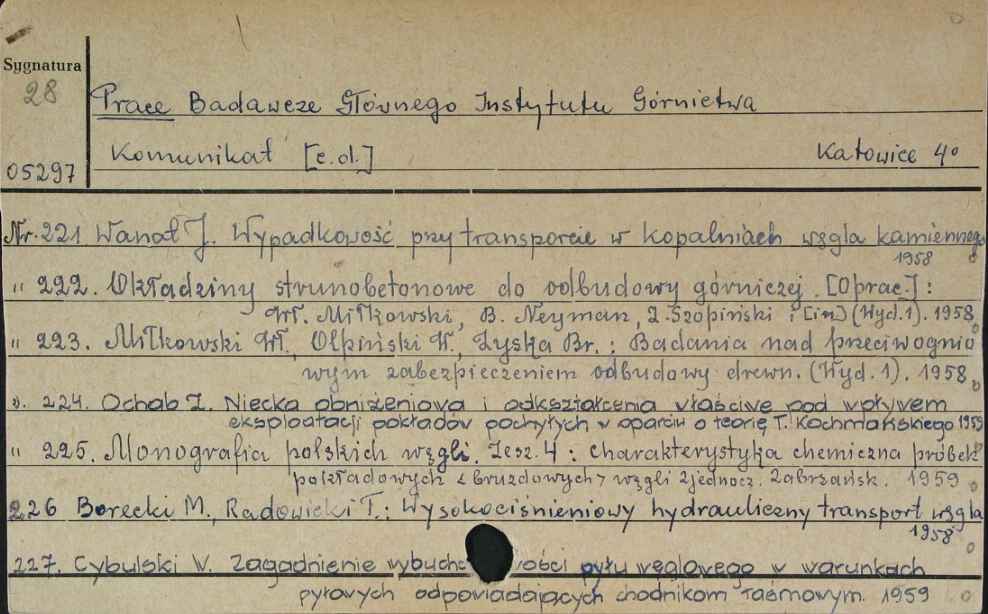 Sygnatura
28
Prace Badawcze Głównego Instytutu Górnictwa
Komunikat [c.d.] Katowice 4°
05297
Nr. 221 Wanat J. Wypadkowość przy transporcie w kopalniach węgla kamiennego
1958
" 222. Okładziny strunobetonowe do odbudowy górniczej. [Oprac.]:
Wł. Miłkowski, B. Neyman, Z. Szopiński i [in] (Wyd. 1). 1958
" 223. Miłkowski Wł., Olpiński W., Zyska Br.: Badania nad przeciwognio
wym zabezpieczeniem odbudowy drewn. (Wyd. 1). 1958
". 224. Ochab Z. Niecka obniżeniowa i odkształcenia właściwe pod wpływem
eksploatacji pokładów pochyłych w oparciu o teorię T. Kochmańskiego 1959
" 225. Monografia polskich węgli. Zesz. 4: Charakterystyka chemiczna próbek
pokładowych <bruzdowych> węgli zjednocz. Zabrzańsk. 1959
226 Borecki M., Radowicki T.: Wysokociśnieniowy hydrauliczny transport węgla
1958
227. Cybulski W. Zagadnienie pyłu węglowego w warunkach
pyłowych odpowiadających chodnikom taśmowym. 1959